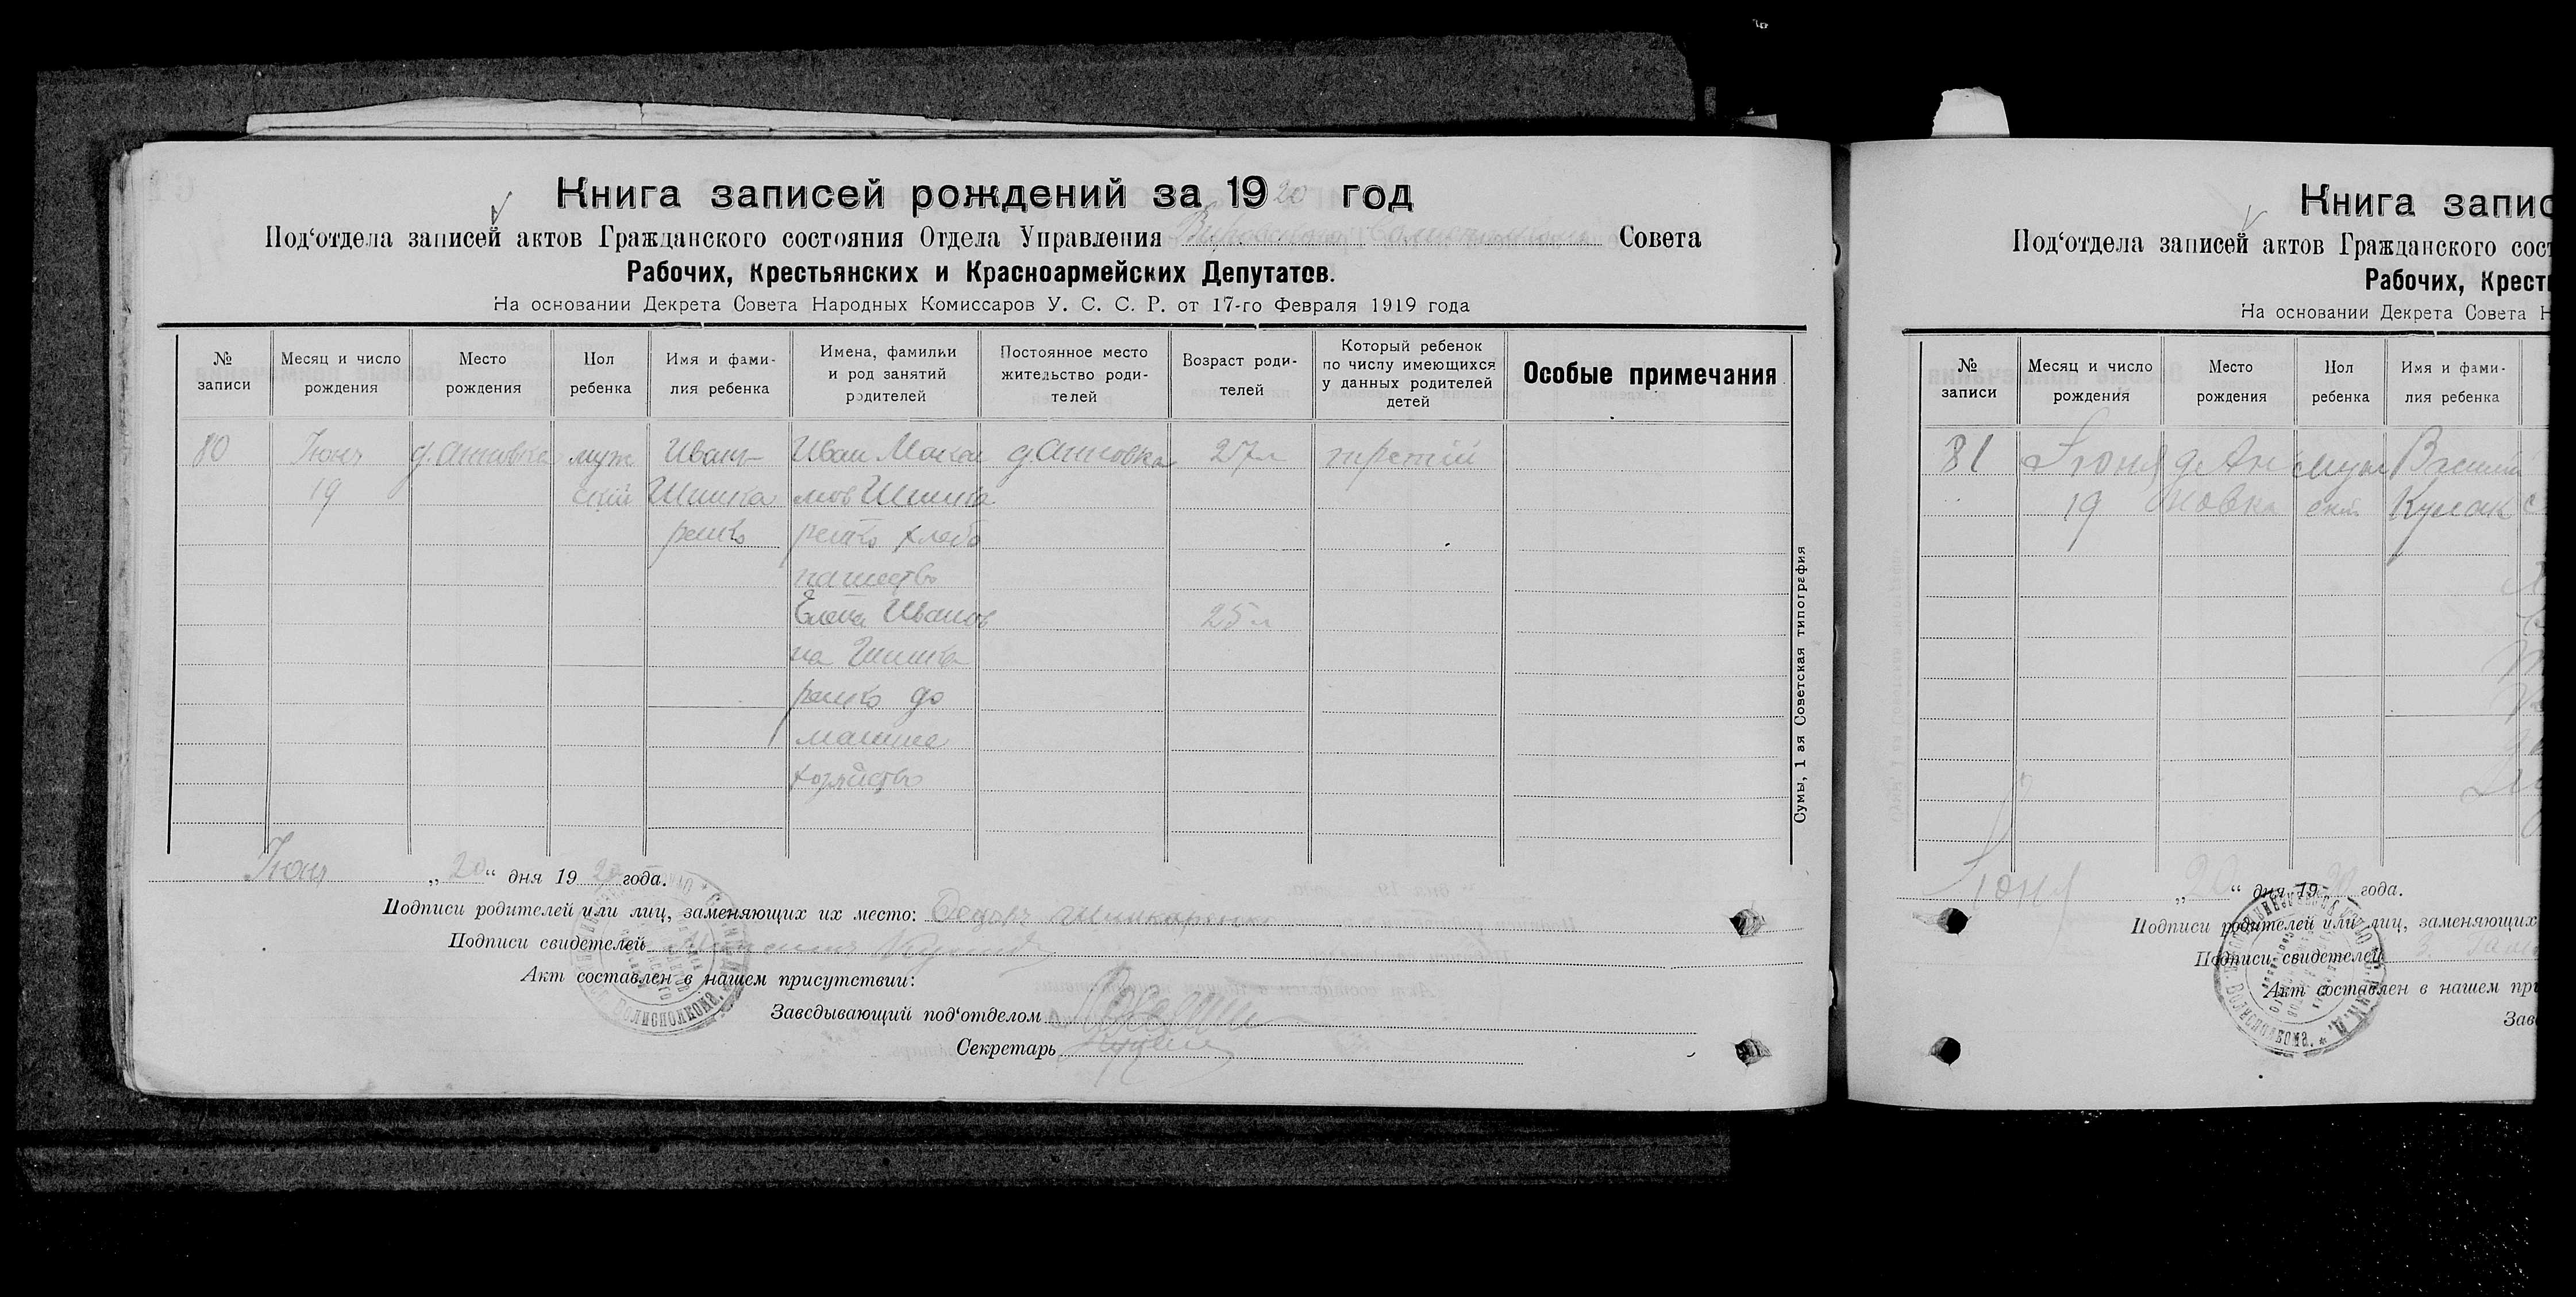 Книга записей рождений за 1920 год
Под‘отдела записей актов Гражданского состояния Отдела Управления Совета
Рабочих, Крестьянских и Красноармейских Депутатов.
На основании Декрета Совета Народных Комиссаров У. С. С. Р. от 17-го Февраля 1919 года
№ записи
Месяц и число рождения
Место рождения
Пол ребенка
Имя и фами-
лия ребенка
Имена, фамилии
и род занятий
родителей
Постоянное место
жительство роди-
телей
Возраст роди-
телей
Который ребенок
по числу имеющихся
у данных родителей
детей
Особые примечания
80
Июня
19
д.
муж
ский
Иван
Шишка
ренко
Иван Макси
мов Шишка
ренко хлебо
пашество
Елена Иванов
на Шишка
ренко до
машнее
хозяйство
д.
27 л
25 л
третий
Сумы, 1 ая Советская типография
Июня „20“ дня 1920 года.
Подписи родителей или лиц, заменяющих их место: Шишкаренко
Подписи свидетелей
Акт составлен в нашем присутствии:
Заведывающий под‘отделом
Секретарь
Книга запис
Под‘отдела записей актов Гражданского сост
Рабочих, Крест
На основании Декрета Совета Н
№ записи
Месяц и число рождения
Место рождения
Пол ребенка
Имя и фами-
лия ребенка
81
Июня
19
д. Ан
новка
муж
ский
Василий
Кулак
Июня „20“ дня 1920 года.
Подписи родителей или лиц, заменяющих
Подписи свидетелей
Акт составлен в нашем при
Зав